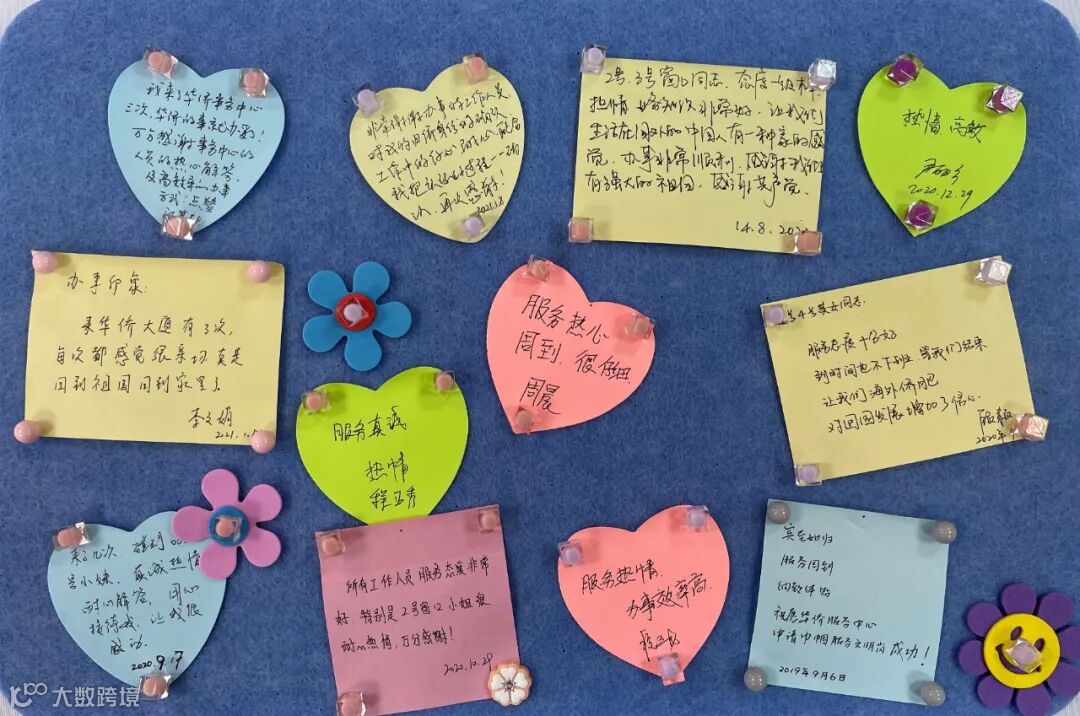 我来了华侨事务中心
三次,华侨的事就办成了,
万分感谢事务中心的
人员的热心解答,
及高效率的办事
方式,点赞
非常谢谢办事的工作人员
工作中的
我把
次,再次感谢!
2021.1.8
2号、3号窗口同志,态度一级棒
热情 非常好,让我们
生活在国外的中国人有一种家的感
觉,办事非常顺利,感谢我们
有强大的祖国,感谢共产党。
14.8.202
热情 高效
2020.12.29
办事印象:
来华侨大厦有3次,
每次都感觉很亲切真是
回到祖国回到家里了
李文娟
2021.1.
服务热心
周到,很仔细
周晨
4号美女同志:
服务态度十分好
到时间也不下班 等我们结束
让我们海外侨胞
对国国发展增加了信心.
2020年
服务真诚
热情
程正秀
来了几次,碰到
号小妹,真诚热情
耐心解答,用心
接待我,让我很
感动.
2020 9.17
所有工作人员服务态度非常
好 特别是2号窗口小姐很
耐心热情,万分感谢!
2020.10.29
服务热情,
办事效率高.
宾至如归
服务周到
细致体贴
祝愿华侨服务中心
申请巾帼服务文明岗成功!
2019年9月6日
大数跨境